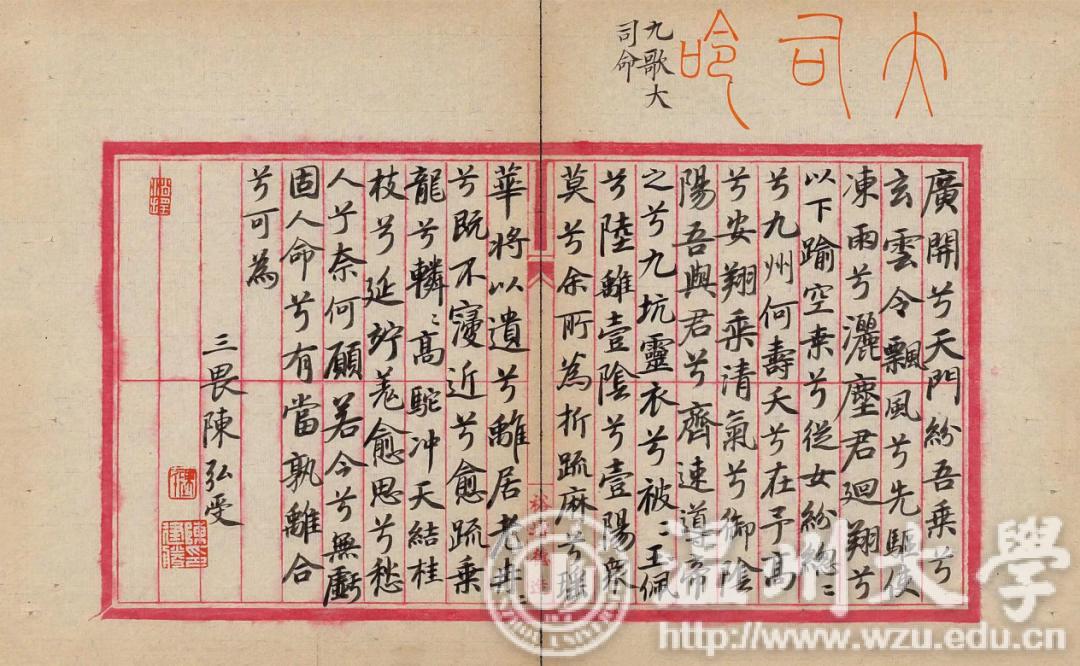 大司命
九歌大
司命
廣開兮天門紛吾乘兮
玄雲令飄風兮先驅使
凍雨兮灑塵君迴翔兮
以下踰空桒兮從女紛總〻
兮九州何壽夭兮在予高
兮安翔乘清氣兮御陰
陽吾與君兮齊速導帝
之兮九坑靈衣兮被〻玉佩
兮陸離壹陰兮壹陽衆
莫兮余所為折疏麻兮瑤
華將以遺兮離居老冉〻
兮既不寖近兮愈疏乘
龍兮轔〻高駝冲天結桂
枝兮延竚羌愈思兮愁
人兮奈何願若今兮無虧
固人命兮有當孰離合
兮可為
三畏陳弘受
温州大学
http://www.wzu.edu.cn